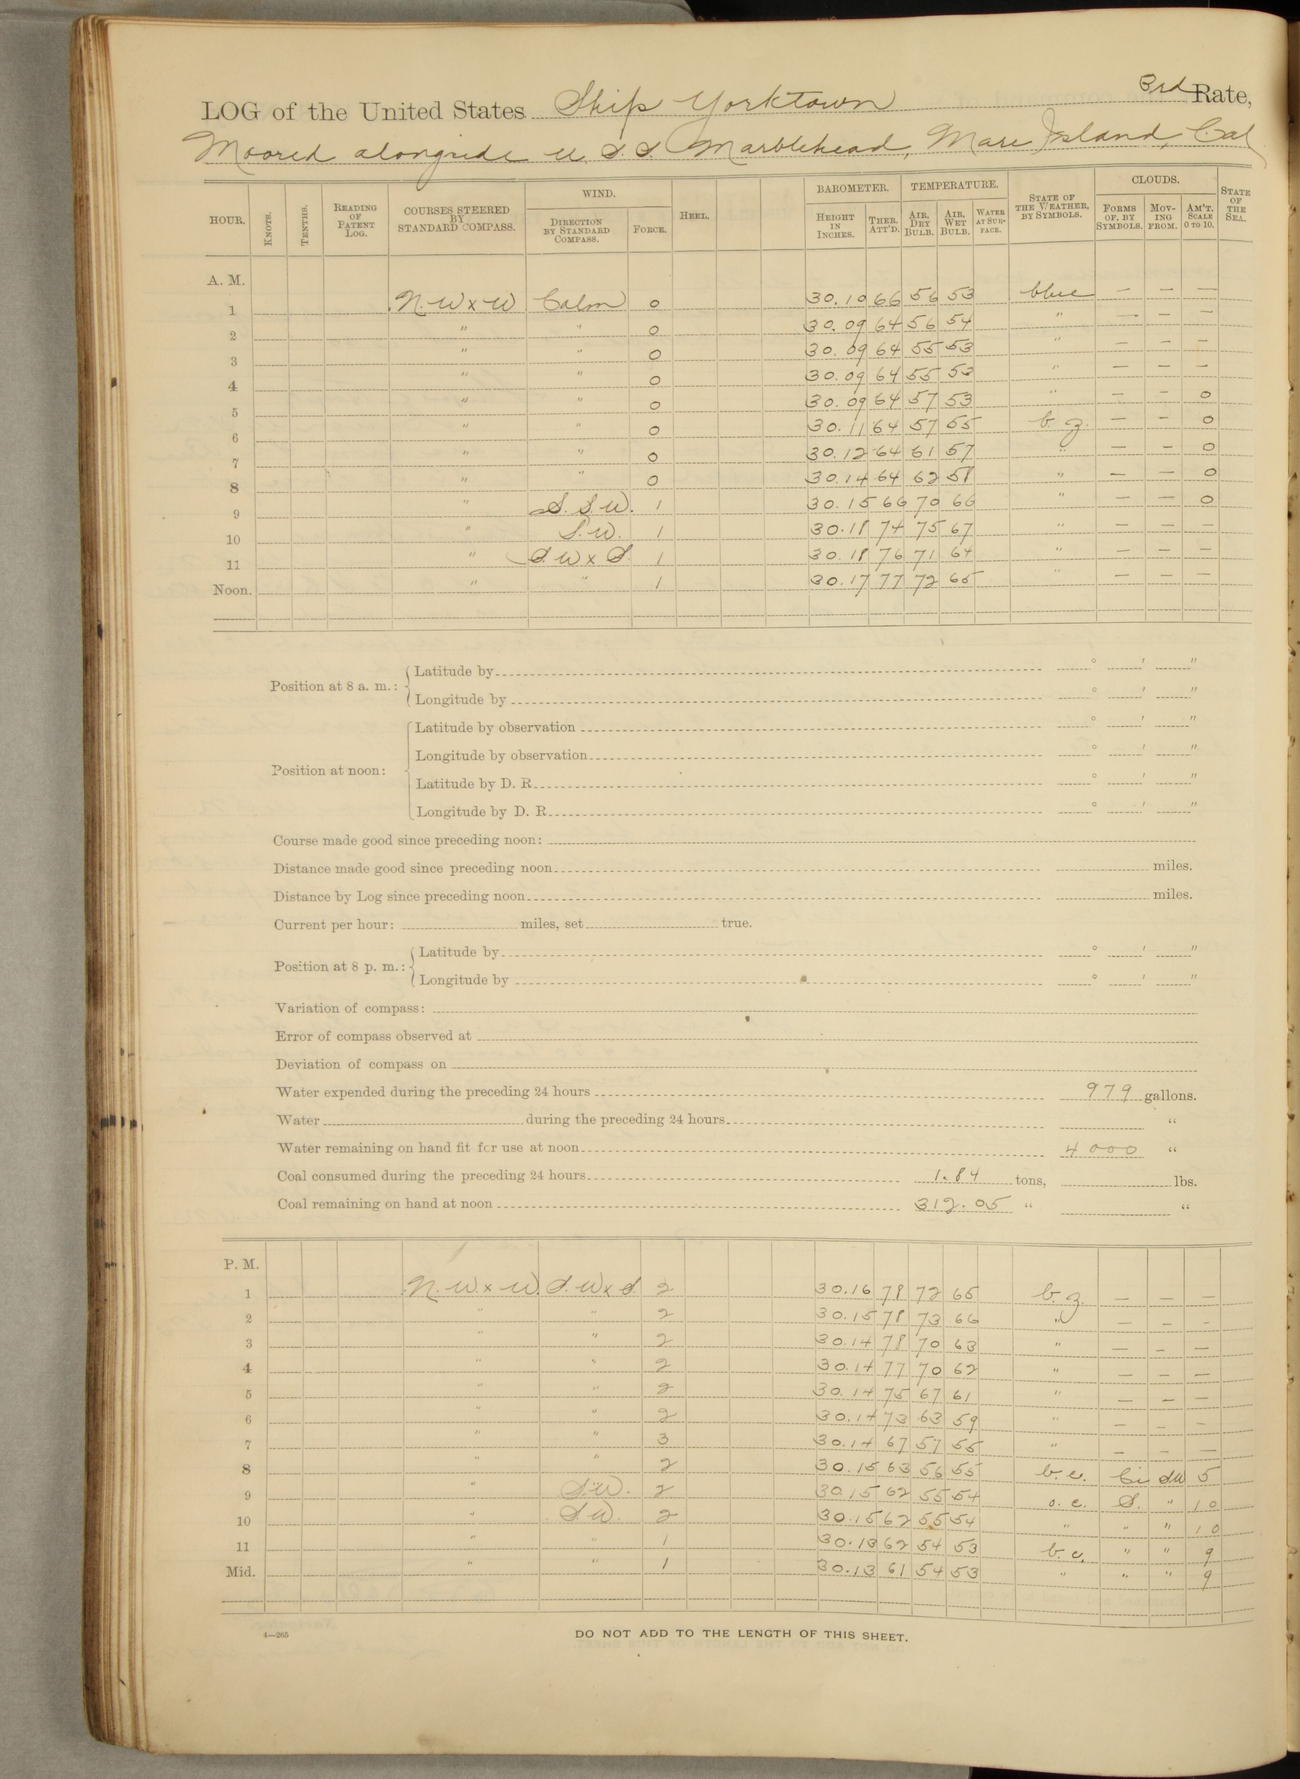 LOG of the United States Ship Yorktown 3rd Rate,
Moored alongside U.S.S. Marblehead, Mare Island, Cal
HOUR. KNOTS. TENTHS. READING OF PATENT LOG. COURSES STEERED BY STANDARD COMPASS. WIND. DIRECTION BY STANDARD COMPASS. FORCE. HEEL. BAROMETER. HEIGHT IN INCHES. THER. ATT'D. TEMPERATURE. AIR, DRY BULB. AIR, WET BULB. WATER AT SURFACE. STATE OF THE WEATHER, BY SYMBOLS. CLOUDS. FORMS OF, BY SYMBOLS. MOVING FROM. AM'T. SCALE 0 TO 10. STATE OF THE SEA.
A. M.
1 N.W x W Calm 0 30.10 66 56 53 blue — — —
2 " " 0 30.09 64 56 54 " — — —
3 " " 0 30.09 64 55 53 " — — —
4 " " 0 30.09 64 55 53 " — — —
5 " " 0 30.09 64 57 53 " — — 0
6 " " 0 30.11 64 57 55 b. z. — — 0
7 " " 0 30.12 64 61 57 " — — 0
8 " " 0 30.14 64 62 58 " — — 0
9 " S.S.W. 1 30.15 66 70 66 " — — 0
10 " S.W. 1 30.18 74 75 67 " — — —
11 " S.W x S. 1 30.18 76 71 64 " — — —
Noon. " " 1 30.17 77 72 65 " — — —
Position at 8 a. m.: Latitude by ° ' "
Longitude by ° ' "
Position at noon: Latitude by observation ° ' "
Longitude by observation ° ' "
Latitude by D. R. ° ' "
Longitude by D. R. ° ' "
Course made good since preceding noon:
Distance made good since preceding noon miles.
Distance by Log since preceding noon miles.
Current per hour: miles, set true.
Position at 8 p. m.: Latitude by ° ' "
Longitude by ° ' "
Variation of compass:
Error of compass observed at
Deviation of compass on
Water expended during the preceding 24 hours 979 gallons.
Water during the preceding 24 hours "
Water remaining on hand fit for use at noon 4000 "
Coal consumed during the preceding 24 hours 1.84 tons, lbs.
Coal remaining on hand at noon 312.05 " "
P. M.
1 N.W. x W. S.W x S. 2 30.16 78 72 65 b. z. — — —
2 " " 2 30.15 78 73 66 " — — -
3 " " 2 30.14 78 70 63 " — — —
4 " " 2 30.14 77 70 62 " — — —
5 " " 2 30.14 75 67 61 " — — —
6 " " 2 30.14 73 63 59 " — — -
7 " " 3 30.14 67 57 55 " — — —
8 " " 2 30.15 63 56 55 b. c. Ci SW 5
9 " S.W. 2 30.15 62 55 54 o. c. S. " 10
10 " S.W. 2 30.15 62 55 54 " " " 10
11 " " 1 30.13 62 54 53 b. c. " " 9
Mid. " " 1 30.13 61 54 53 " " " 9
4—265
DO NOT ADD TO THE LENGTH OF THIS SHEET.